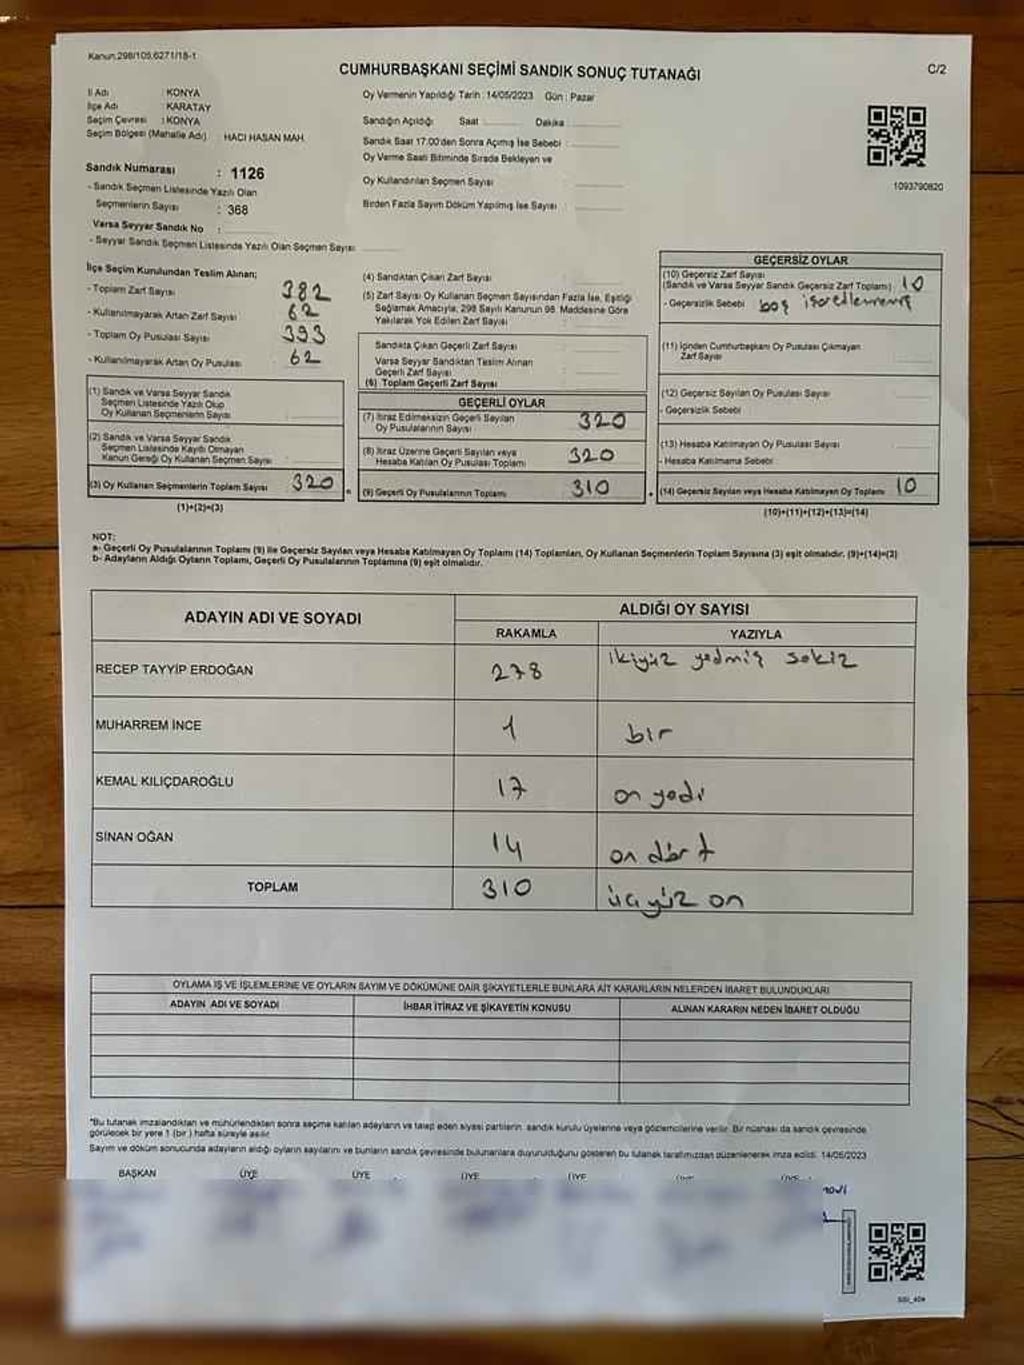 Kanun.298/105,6271/18-1
C/2
CUMHURBAŞKANI SEÇİMİ SANDIK SONUÇ TUTANAĞI
İl Adı : KONYA
İlçe Adı : KARATAY
Seçim Çevresi : KONYA
Seçim Bölgesi (Mahalle Adı) : HACI HASAN MAH.
Oy Vermenin Yapıldığı Tarih : 14/05/2023 Gün : Pazar
Sandığın Açıldığı Saat Dakika
Sandık Saat 17.00'den Sonra Açılmış İse Sebebi :
Oy Verme Saati Bitiminde Sırada Bekleyen ve
Oy Kullandırılan Seçmen Sayısı
Birden Fazla Sayım Döküm Yapılmış İse Sayısı :
1093790820
Sandık Numarası : 1126
- Sandık Seçmen Listesinde Yazılı Olan
Seçmenlerin Sayısı : 368
Varsa Seyyar Sandık No :
- Seyyar Sandık Seçmen Listesinde Yazılı Olan Seçmen Sayısı
İlçe Seçim Kurulundan Teslim Alınan;
- Toplam Zarf Sayısı 382
- Kullanılmayarak Artan Zarf Sayısı 62
- Toplam Oy Pusulası Sayısı 393
- Kullanılmayarak Artan Oy Pusulası 62
(1) Sandık ve Varsa Seyyar Sandık
Seçmen Listesinde Yazılı Olup
Oy Kullanan Seçmenlerin Sayısı
(2) Sandık ve Varsa Seyyar Sandık
Seçmen Listesinde Kayıtlı Olmayan
Kanun Gereği Oy Kullanan Seçmen Sayısı
(3) Oy Kullanan Seçmenlerin Toplam Sayısı 320
(1)+(2)=(3)
(4) Sandıktan Çıkan Zarf Sayısı
(5) Zarf Sayısı Oy Kullanan Seçmen Sayısından Fazla İse, Eşitliği
Sağlamak Amacıyla, 298 Sayılı Kanunun 98. Maddesine Göre
Yakılarak Yok Edilen Zarf Sayısı
Sandıkta Çıkan Geçerli Zarf Sayısı
Varsa Seyyar Sandıktan Teslim Alınan
Geçerli Zarf Sayısı
(6) Toplam Geçerli Zarf Sayısı
GEÇERLİ OYLAR
(7) İtiraz Edilmeksizin Geçerli Sayılan
Oy Pusulalarının Sayısı 320
(8) İtiraz Üzerine Geçerli Sayılan veya
Hesaba Katılan Oy Pusulası Toplamı 320
(9) Geçerli Oy Pusulalarının Toplamı 310
GEÇERSİZ OYLAR
(10) Geçersiz Zarf Sayısı
(Sandık ve Varsa Seyyar Sandık Geçersiz Zarf Toplamı) 10
- Geçersizlik Sebebi boş işaretlenmemiş
(11) İçinden Cumhurbaşkanı Oy Pusulası Çıkmayan
Zarf Sayısı
(12) Geçersiz Sayılan Oy Pusulası Sayısı
- Geçersizlik Sebebi
(13) Hesaba Katılmayan Oy Pusulası Sayısı
- Hesaba Katılmama Sebebi
(14) Geçersiz Sayılan veya Hesaba Katılmayan Oy Toplamı 10
(10)+(11)+(12)+(13)=(14)
NOT:
a- Geçerli Oy Pusulalarının Toplamı (9) ile Geçersiz Sayılan veya Hesaba Katılmayan Oy Toplamı (14) Toplamları, Oy Kullanan Seçmenlerin Toplam Sayısına (3) eşit olmalıdır. (9)+(14)=(3)
b- Adayların Aldığı Oyların Toplamı, Geçerli Oy Pusulalarının Toplamına (9) eşit olmalıdır.
ADAYIN ADI VE SOYADI
ALDIĞI OY SAYISI
RAKAMLA YAZIYLA
RECEP TAYYİP ERDOĞAN 278 ikiyüz yedmiş sekiz
MUHARREM İNCE 1 bir
KEMAL KILIÇDAROĞLU 17 on yedi
SİNAN OĞAN 14 on dört
TOPLAM 310 üçyüz on
OYLAMA İŞ VE İŞLEMLERİNE VE OYLARIN SAYIM VE DÖKÜMÜNE DAİR ŞİKAYETLERLE BUNLARA AİT KARARLARIN NELERDEN İBARET BULUNDUKLARI
ADAYIN ADI VE SOYADI İHBAR İTİRAZ VE ŞİKAYETİN KONUSU ALINAN KARARIN NEDEN İBARET OLDUĞU
*Bu tutanak imzalandıktan ve mühürlendikten sonra seçime katılan adayların ve talep eden siyasi partilerin, sandık kurulu üyelerine veya gözlemcilerine verilir. Bir nüshası da sandık çevresinde
görülecek bir yere 1 (bir) hafta süreyle asılır.
Sayım ve döküm sonucunda adayların aldığı oyların sayılarını ve bunların sandık çevresinde bulunanlara duyurulduğunu gösteren bu tutanak tarafımızdan düzenlenerek imza edildi. 14/05/2023
BAŞKAN ÜYE ÜYE ÜYE ÜYE ÜYE ÜYE